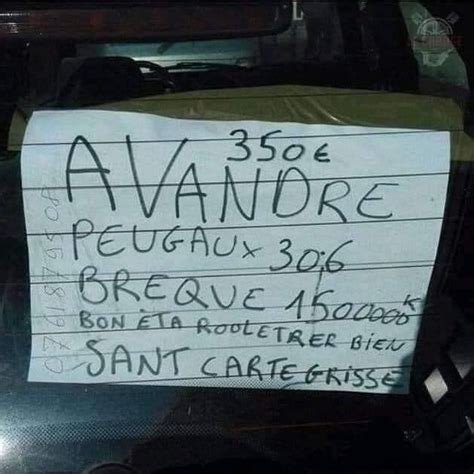 350€
AVANDRE
PEUGAUX 306
BREQUE 1500000K
BON ÈTA ROOLETRER BIEN
SANT CARTE GRISSE